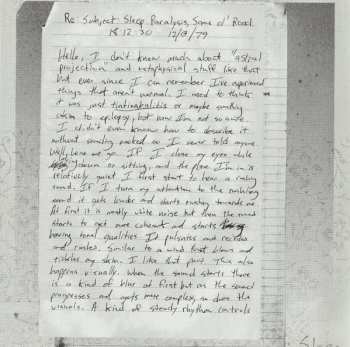 Re: Subject: Sleep Paralysis, Some o' Road.
18 12 30 12/8/79
Hello, I don't know much about "astral
projection" and metaphysical stuff like that
but ever since I can remember I've experienced
things that aren't normal. I used to think
it was just or maybe something
akin to epilepsy, but now I'm not so sure.
I didn't even know how to describe it
without sounding so I never told anyone
Well, here we go. If I close my eyes while
laying down or sitting, and the place I'm in is
relatively quiet I first start to hear a rushing
sound. If I turn my attention to the rushing
sound it gets louder and starts rushing towards me
At first it is mostly white noise but then the sound
starts to get more coherent and starts
having tonal qualities. It pulsates and
and rushes. Similar to a wind that blows and
tickles my skin. I like that part. This also
happens visually. When the sound starts there
is a kind of blur at first but as the sound
progresses and gets more complex, so does the
visuals. A kind of steady rhythm controls
Sleep